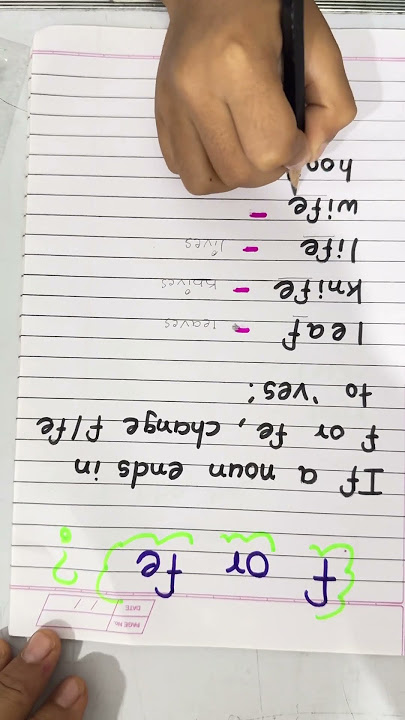 PAGE No.
DATE / /
f or fe ?
If a noun ends in
f or fe, change f/fe
to 'ves'.
leaf - leaves
knife - knives
life - lives
wife -